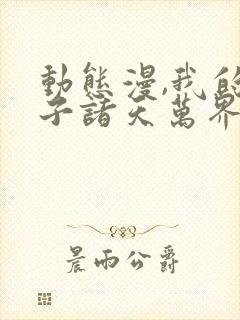 動態漫,我的
子諸天萬界
晨雨公爵